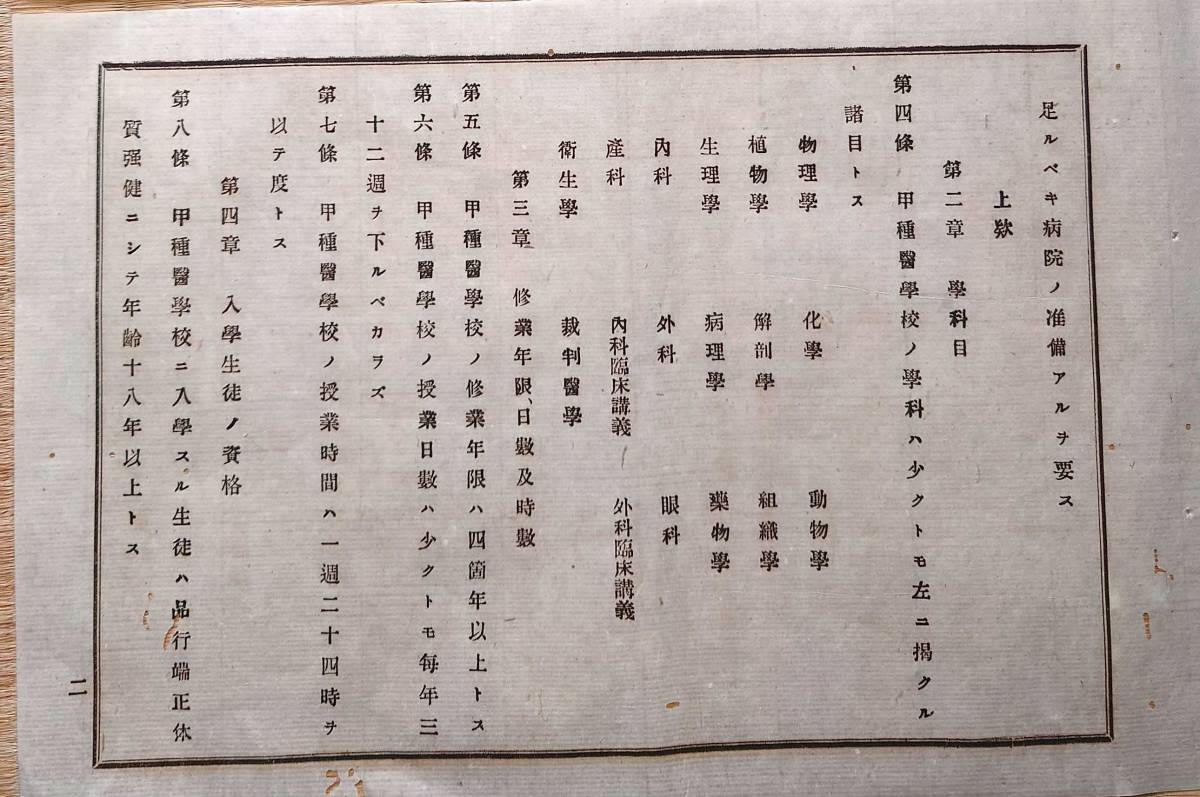 足ルベキ病院ノ准備アルヲ要ス
上欵
第二章 學科目
第四條 甲種醫學校ノ學科ハ少クトモ左ニ揭クル
諸目トス
物理學 化學 動物學
植物學 解剖學 組織學
生理學 病理學 藥物學
內科 外科 眼科
產科 內科臨床講義 外科臨床講義
衛生學 裁判醫學
第三章 修業年限、日數及時數
第五條 甲種醫學校ノ修業年限ハ四箇年以上トス
第六條 甲種醫學校ノ授業日數ハ少クトモ每年三
十二週ヲ下ルベカラズ
第七條 甲種醫學校ノ授業時間ハ一週二十四時ヲ
以テ度トス
第四章 入學生徒ノ資格
第八條 甲種醫學校ニ入學スル生徒ハ品行端正休
質强健ニシテ年齡十八年以上トス
二